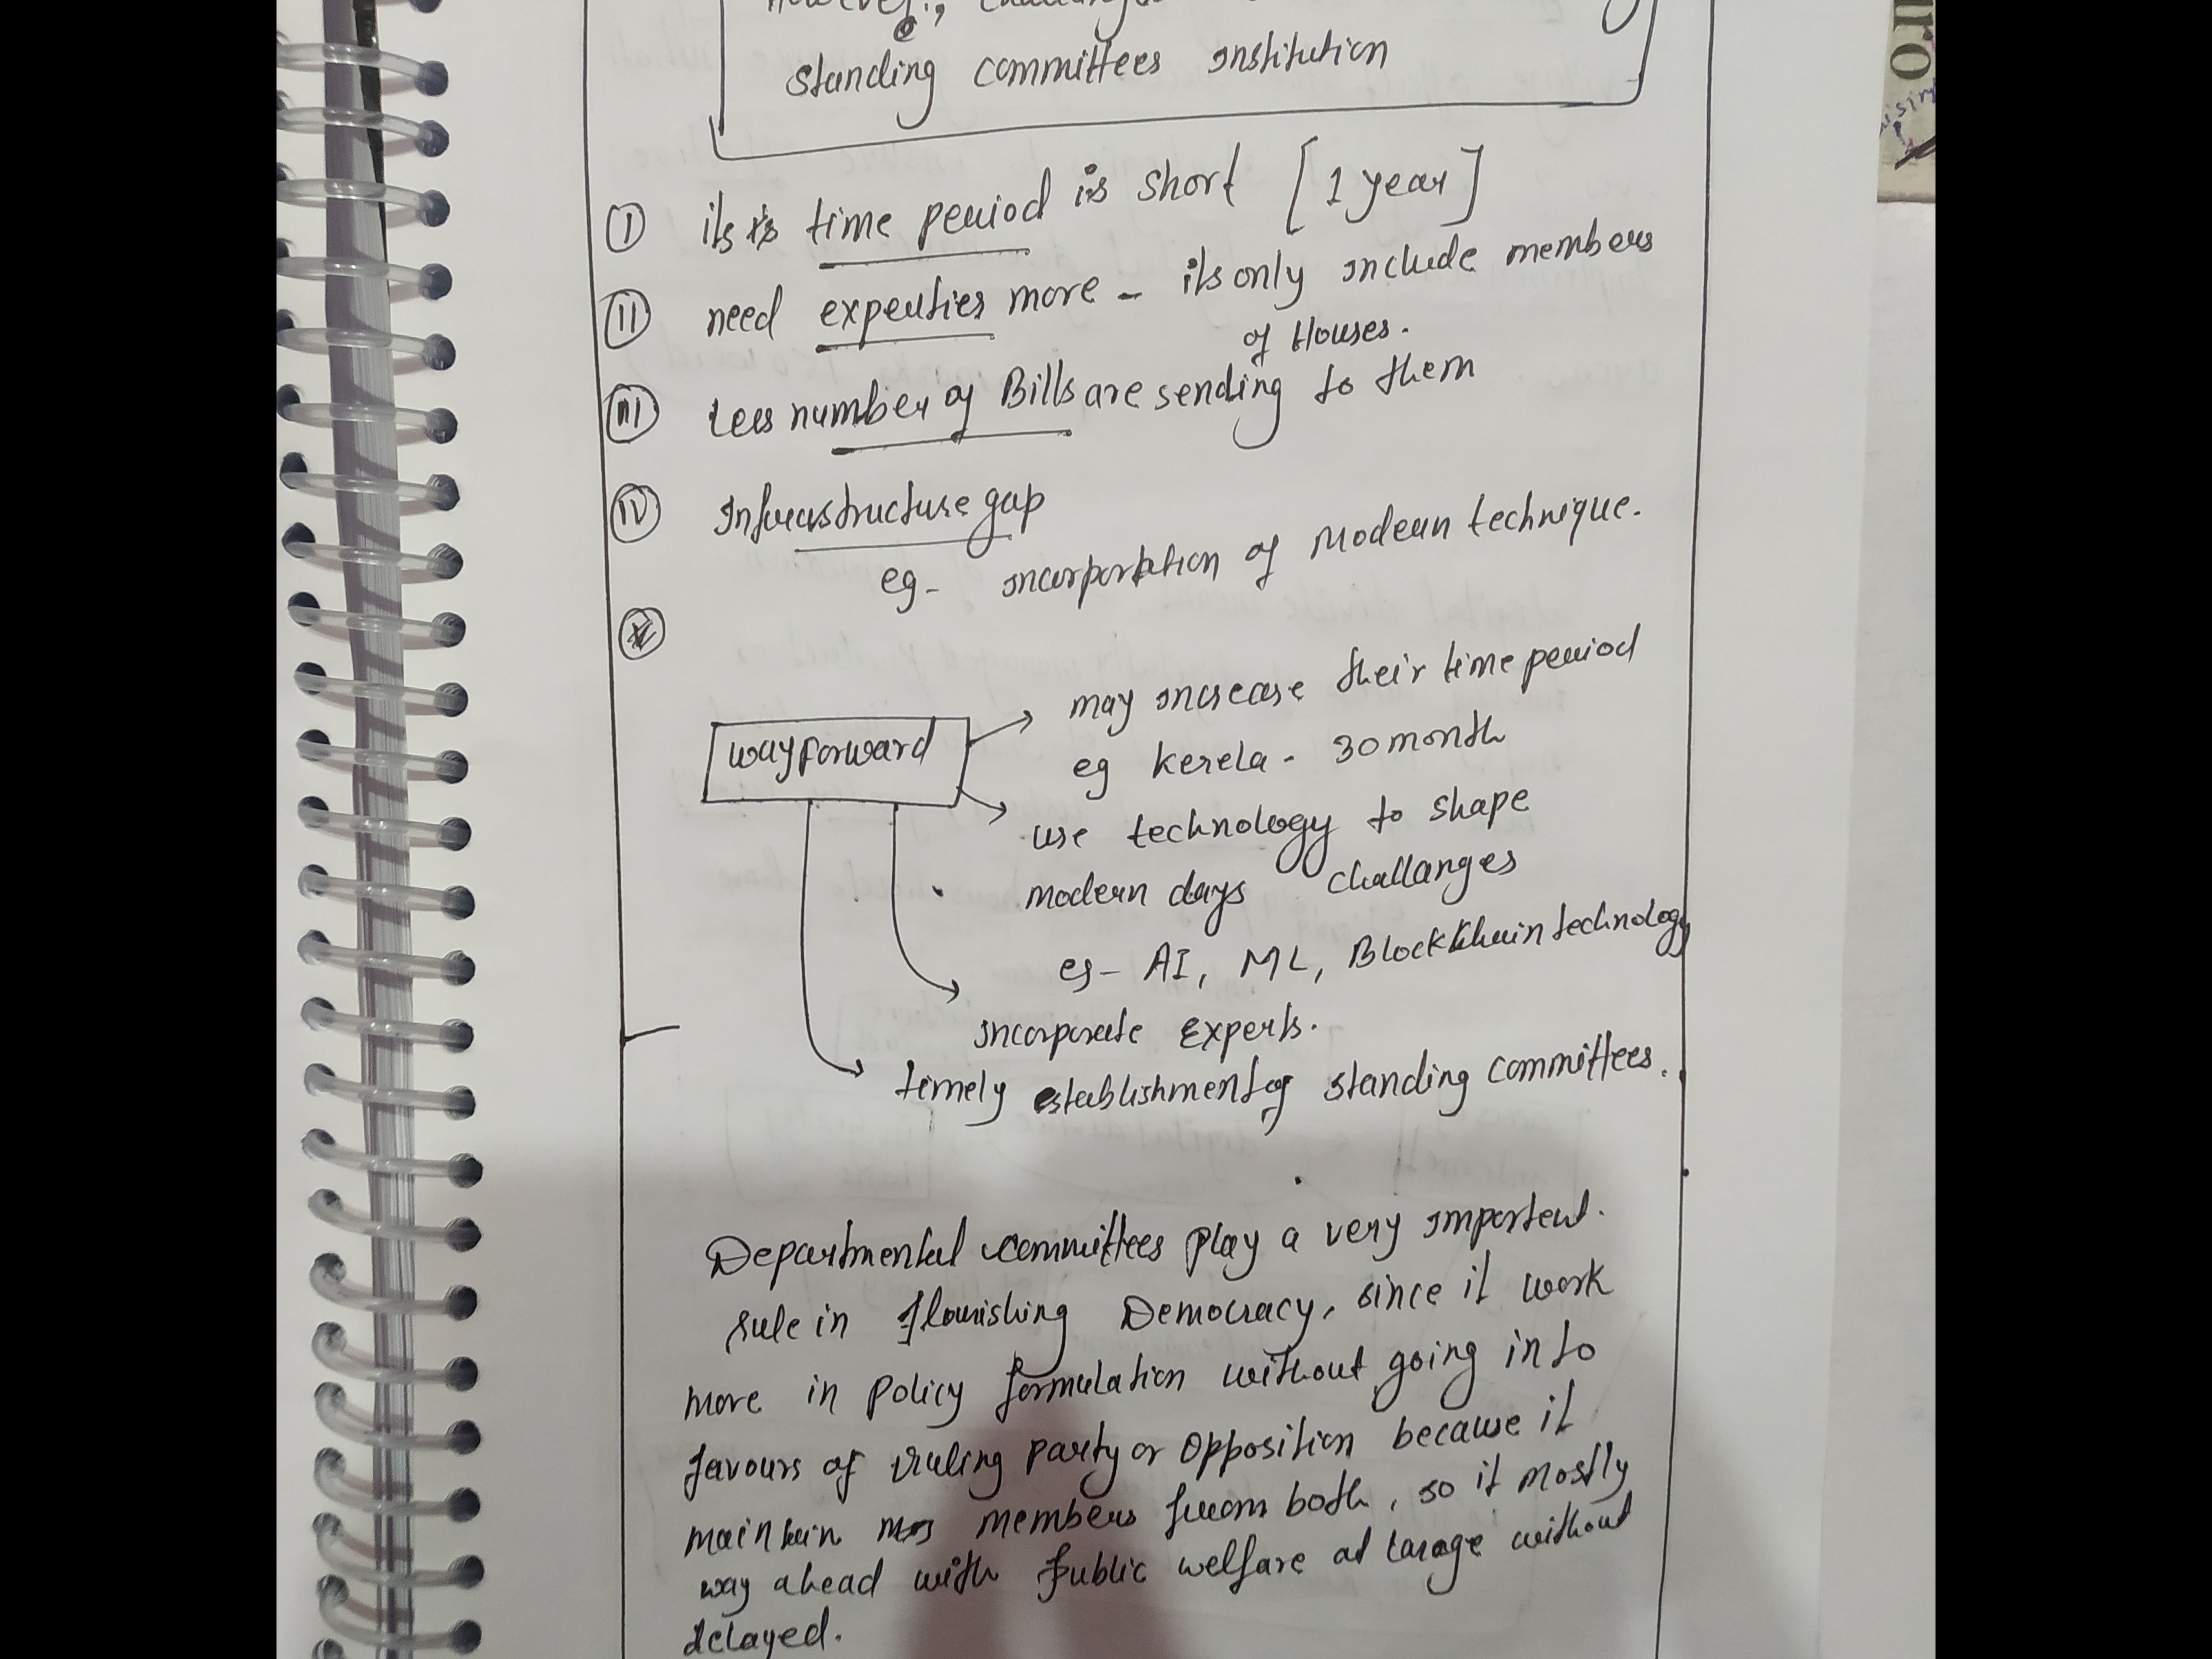 However,
standing committees institution
(I) its time period is short [1 year]
(II) need experties more - its only include members
of Houses.
(III) Less number of Bills are sending to them
(IV) Infrastructure gap
eg- incorporation of Modern technique.
may increase their time period
way forward
eg kerela - 30 month
use technology to shape
modern days challanges
eg- AI, ML, Blockchain technology
incorporate Experts.
timely establishment of standing committees.
Departmental committees play a very important
rule in flourishing Democracy, since it work
more in policy formulation without going in to
favours of ruling party or opposition because it
maintain members from both, so it mostly
way ahead with public welfare at large without
delayed.
uro